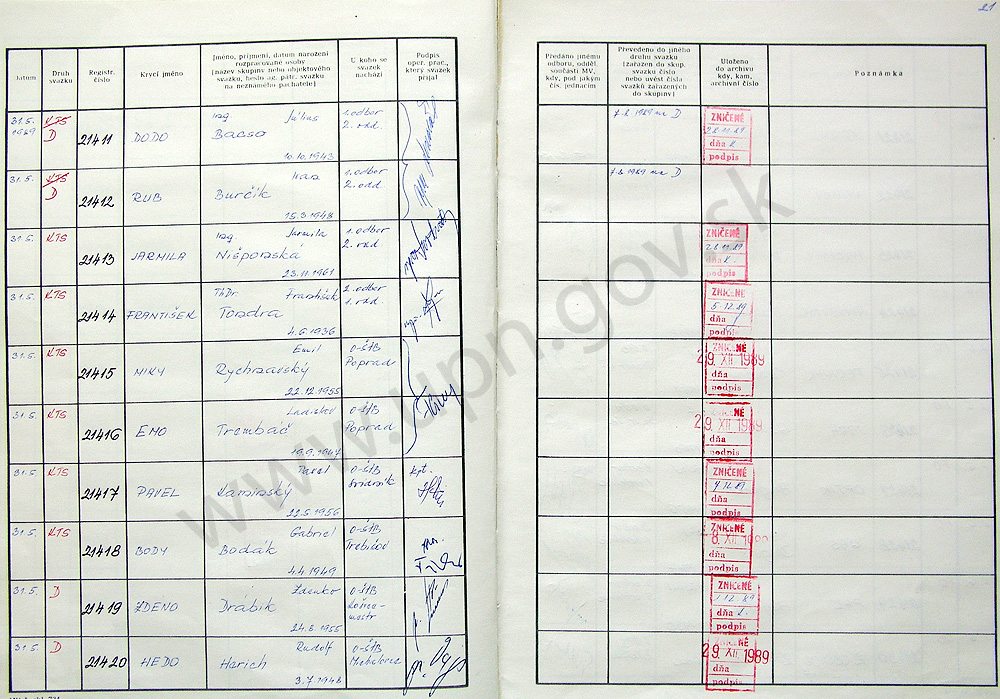 21
Datum
Druh svazku
Registr. číslo
Krycí jméno
Jméno, příjmení, datum narození rozpracované osoby
(název skupiny nebo objektového svazku, heslo ag. pátr. svazku na neznámého pachatele)
U koho se svazek nachází
Podpis oper. prac., který svazek přijal
Předáno jinému odboru, odděl. součásti MV, kdy, pod jakým čís. jednacím
Převedeno do jiného druhu svazku (zařazen do skup. svazku číslo nebo uvést čísla svazků zařazených do skupiny)
Uloženo do archivu kdy, kam, archivní číslo
Poznámka
31.5. 1989 KTS D 21411 DODO Ing Július Bacso 10.10.1943 1. odbor 2. odd. 7.8.1989 na D ZNIČENÉ dňa podpis
31.5. KTS D 21412 RUB Burčik 15.3.1948 1. odbor 2. odd 7.8.1989 na D
31.5. KTS 21413 JARMILA Ing Jarmila 23.11.1961 1. odbor 2. odd ZNIČENÉ dňa podpis
31.5. KTS 21414 FRANTIŠEK ThDr. František Tondra 4.6.1936 2. odbor 1. odd. ZNIČENÉ 5.12.89 dňa podpis
31.5. KTS 21415 NIKY Emil Rychvavský 22.12.1955 O-ŠtB Poprad ZNIČENÉ 29. XII. 1989 dňa podpis
31.5. KTS 21416 EMO Ladislav Trembáč O-ŠtB Poprad ZNIČENÉ 29. XII. 1989 dňa podpis
31.5. KTS 21417 PAVEL Pavel Kaminský 22.5.1956 O-ŠtB Svidník kpt. ZNIČENÉ dňa podpis
31.5. KTS 21418 BODY Gabriel Bodák 4.4.1949 O-ŠtB Trebišov ZNIČENÉ 8. XII. 1989 dňa podpis
31.5. D 21419 ZDENO Zdenko Drábik 24.8.1955 O-ŠtB ZNIČENÉ dňa podpis
31.5. D 21420 HEDO Rudolf Harich 3.7.1948 O-ŠtB Michalovce ZNIČENÉ 29. XII. 1989 dňa podpis
www.upn.gov.sk